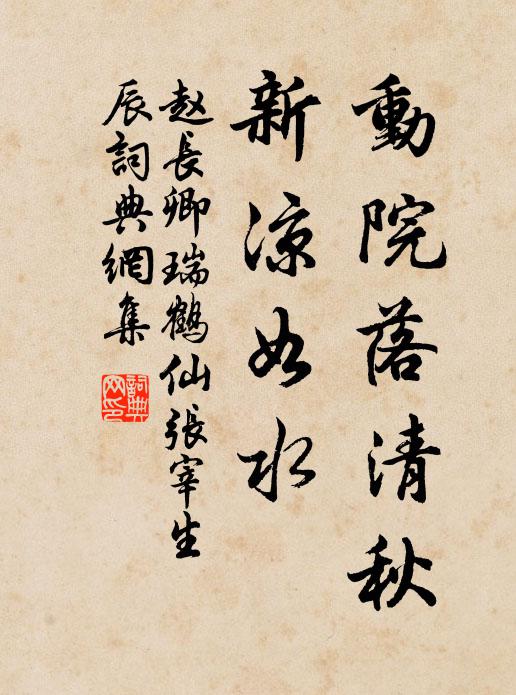 動院落清秋
新涼如水
赵長卿瑞鶴仙張宰生
辰詞典網集
詞典网印